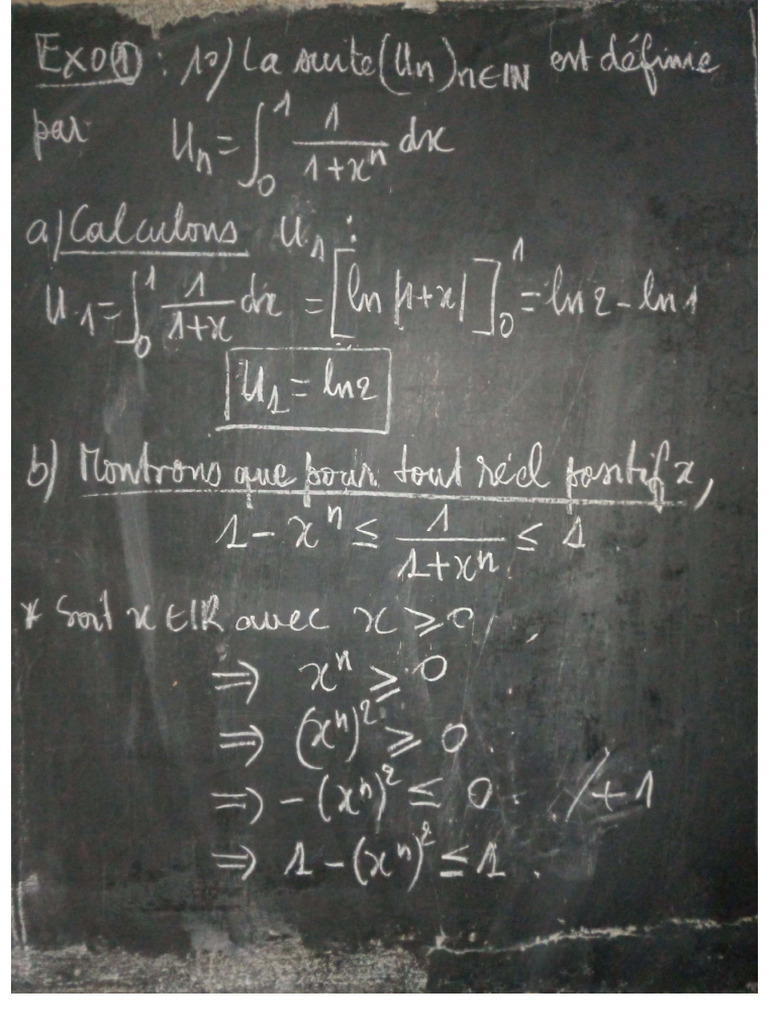 Exo① : 1°) La suite (Un)n∈IN est définie
par Un = ∫₀¹ 1/(1+xⁿ) dx
a) Calculons U₁ :
U₁ = ∫₀¹ 1/(1+x) dx = [ln |1+x|]₀¹ = ln2 - ln1
U₁ = ln2
b) Montrons que pour tout réel positif x,
1 - xⁿ ≤ 1/(1+xⁿ) ≤ 1
* Soit x ∈ IR avec x ≥ 0
⇒ xⁿ ≥ 0
⇒ (xⁿ)² ≥ 0
⇒ -(xⁿ)² ≤ 0 /+1
⇒ 1 - (xⁿ)² ≤ 1.